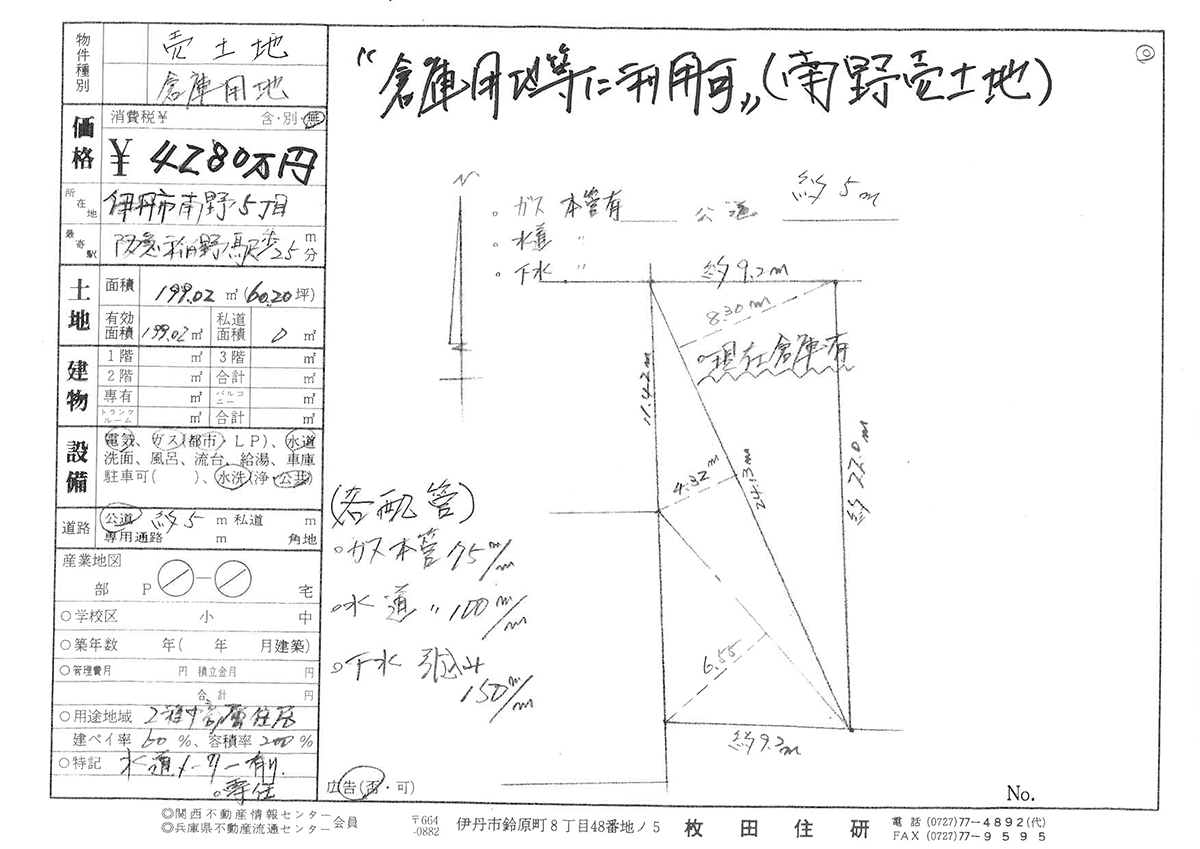 物件種別 売土地
倉庫用地
〝倉庫用地等に利用可〟(南野売土地)
価格 消費税¥ 含・別・無
¥ 4280万円
所在地 伊丹市南野5丁目
最寄駅 阪急稲野駅歩25分 m
土地 面積 199.02㎡(60.20坪)
有効面積 199.02㎡ 私道面積 0㎡
建物 1階 ㎡ 3階 ㎡
2階 ㎡ 合計 ㎡
専有 ㎡ バルコニー ㎡
トランクルーム ㎡ 合計 ㎡
設備 電気、ガス(都市・LP)、水道
洗面、風呂、流台、給湯、車庫
駐車可( )、水洗(浄・公共)
道路 公道 約5m 私道 m
専用通路 m 角地
産業地図
部 P ○-○ 宅
○学校区 小 中
○築年数 年( 年 月建築)
○管理費月 円 積立金月 円
合計 円
○用途地域 2種中高層住居
建ペイ率 60%、容積率 200%
○特記 水道メーター有り.
○専任
N
○ガス本管有
○水道 〃
○下水 〃
公道 約5m
約9.2m
8.30m
○現在倉庫有
11.42m
4.32m
24.13m
約22.0m
6.55
約9.2m
(各配管)
○ガス本管 75m/m
○水道 〃 100m/m
○下水 引込み
150m/m
広告(否・可)
No.
◎関西不動産情報センター
◎兵庫県不動産流通センター 会員
〒664-0882 伊丹市鈴原町8丁目48番地ノ5 枚田住研
電話(0727)77-4892(代)
FAX(0727)77-9595